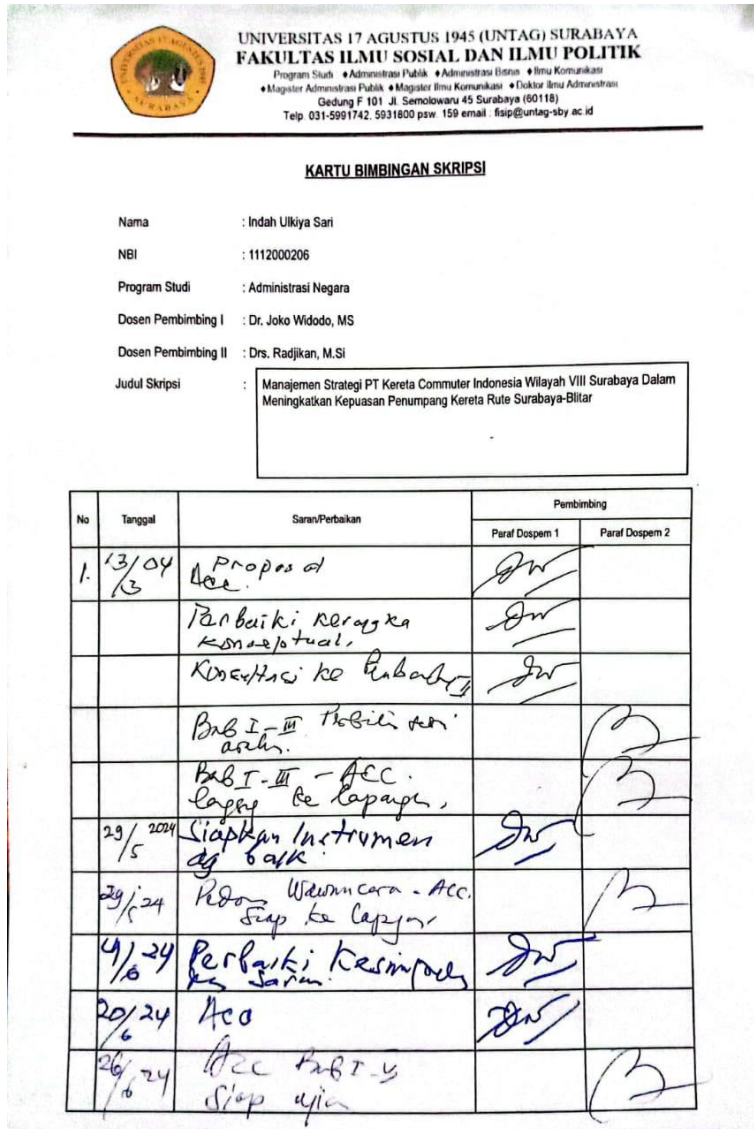 UNIVERSITAS 17 AGUSTUS 1945 (UNTAG) SURABAYA
FAKULTAS ILMU SOSIAL DAN ILMU POLITIK
Program Studi ♦Administrasi Publik ♦Administrasi Bisnis ♦Ilmu Komunikasi
♦Magister Administrasi Publik ♦Magister Ilmu Komunikasi ♦Doktor Ilmu Administrasi
Gedung F 101 Jl. Semolowaru 45 Surabaya (60118)
Telp. 031-5991742, 5931800 psw. 159 email : fisip@untag-sby.ac.id
SURABAYA
KARTU BIMBINGAN SKRIPSI
Nama : Indah Ulkiya Sari
NBI : 1112000206
Program Studi : Administrasi Negara
Dosen Pembimbing I : Dr. Joko Widodo, MS
Dosen Pembimbing II : Drs. Radjikan, M.Si
Judul Skripsi : Manajemen Strategi PT Kereta Commuter Indonesia Wilayah VIII Surabaya Dalam
Meningkatkan Kepuasan Penumpang Kereta Rute Surabaya-Blitar
No Tanggal Saran/Perbaikan Pembimbing
Paraf Dospem 1 Paraf Dospem 2
1. 13/04 Proposal
Acc.
Perbaiki kerangka
konseptual.
Konsultasi ke
Bab I-III
Bab I-III - ACC.
ke lapangan.
29/5 2024 Siapkan Instrumen
dg baik.
29/5 24 Wawancara - Acc.
Siap ke
4/6 24 Perbaiki Kesimpulan
Saran.
20/6 24 Acc
26/6 24 Acc Bab I-V
Siap ujian